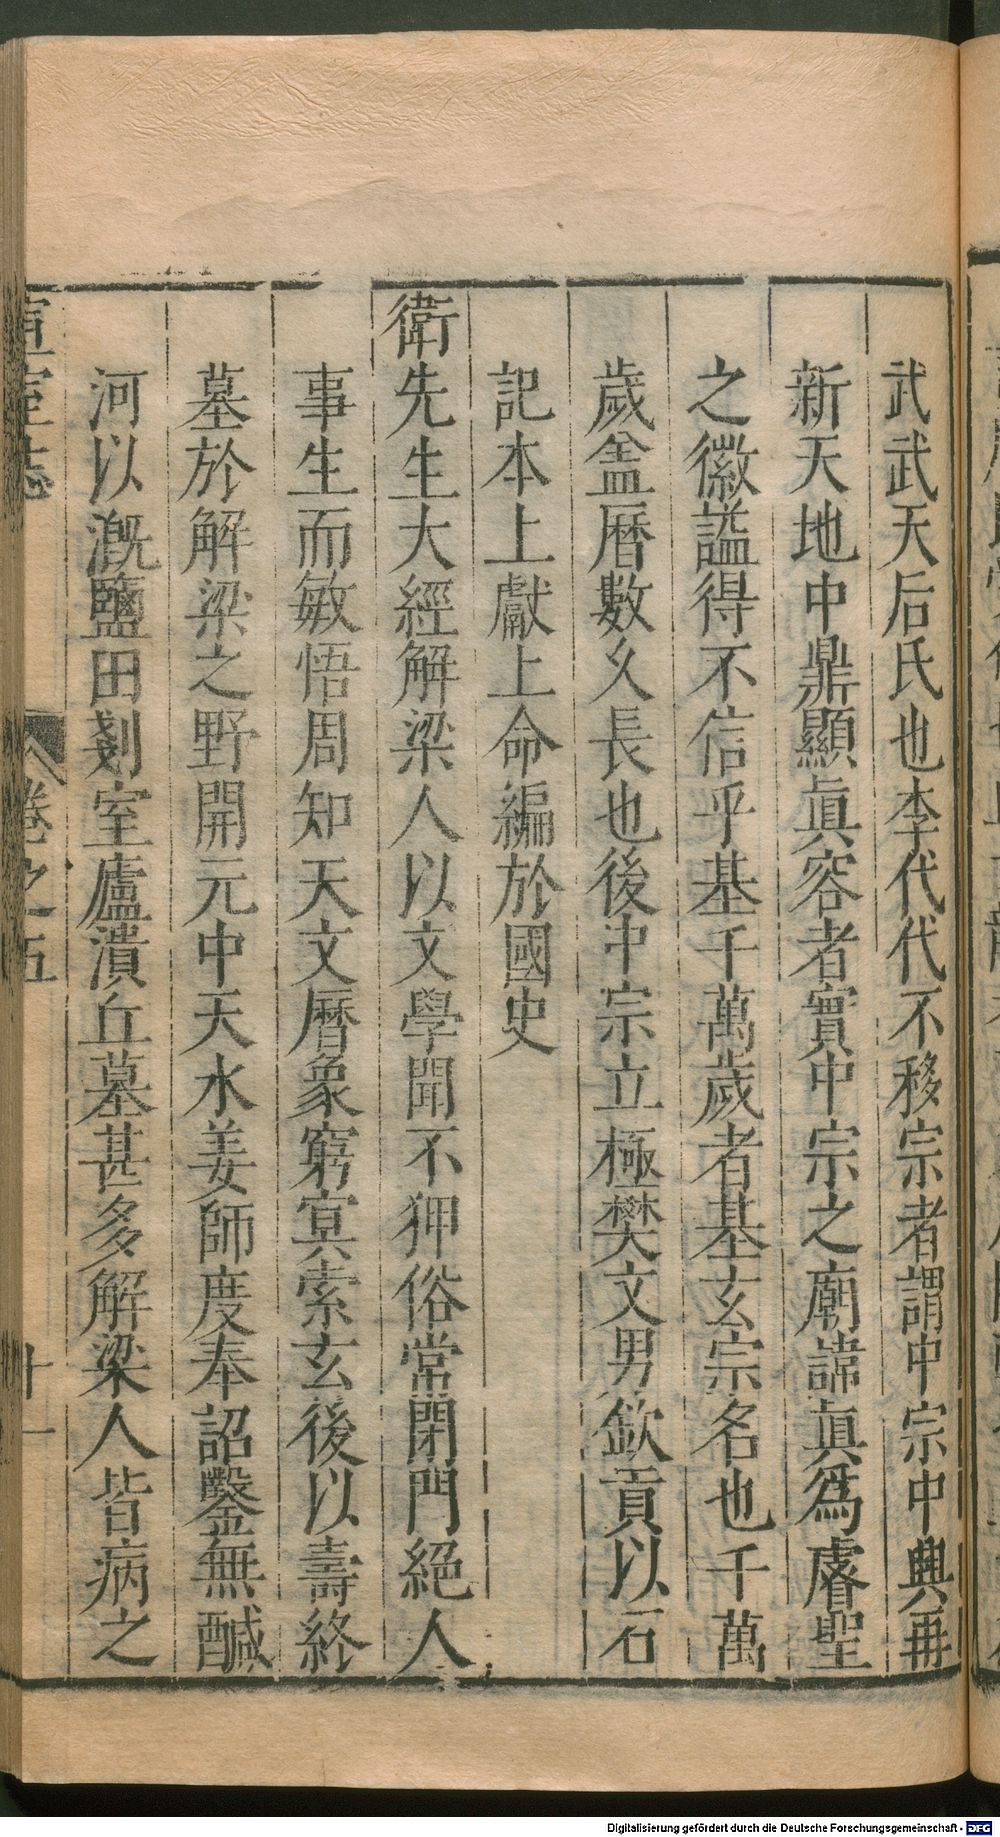 武武天后氏也李代代不移宗者謂中宗中興再
新天地中鼎顯眞容者實中宗之廟諱眞爲睿聖
之徽謚得不信乎基千萬歲者基玄宗名也千萬
歲盖曆數久長也後中宗立極樊文男欽貢以石
記本上獻上命編於國史
衛先生大經解梁人以文學聞不狎俗常閉門絕人
事生而敏悟周知天文曆象窮冥索玄後以壽終
墓於解梁之野開元中天水姜師度奉詔鑿無鹹
河以漑鹽田剗室廬潰丘墓甚多解梁人皆病之
宣室志
卷之五
十一
Digitalisierung gefördert durch die Deutsche Forschungsgemeinschaft - DFG